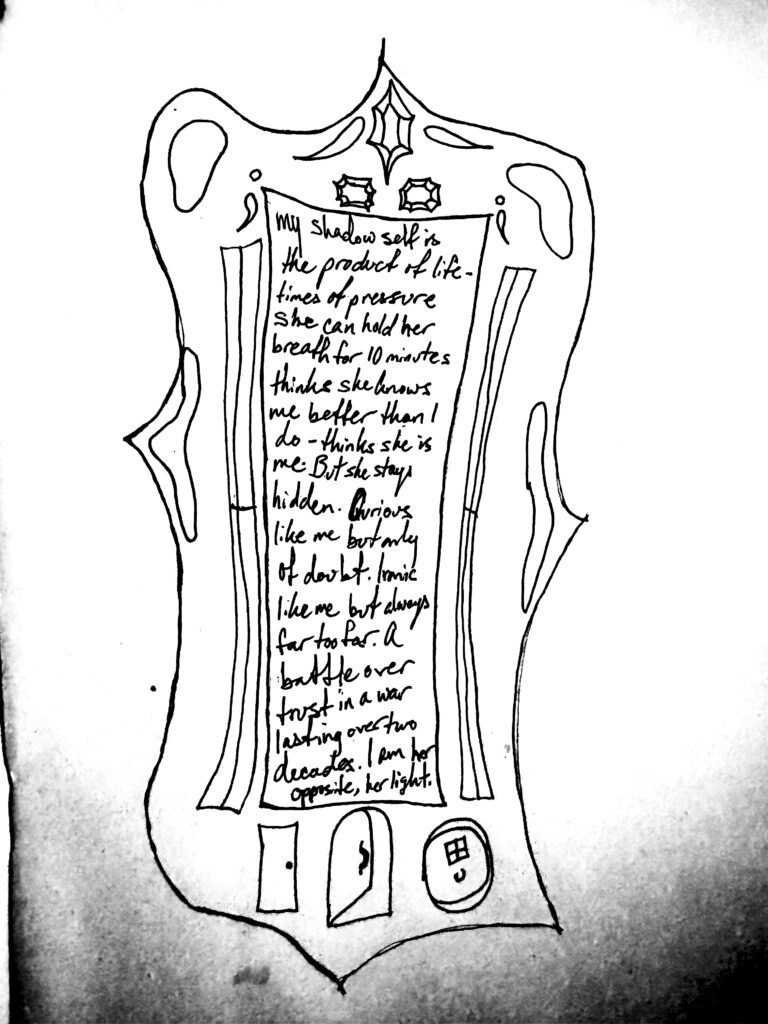 my shadow self is
the product of life-
times of pressure
She can hold her
breath for 10 minutes
thinks she knows
me better than I
do - thinks she is
me. But she stays
hidden. Curious
like me but only
of doubt. Ironic
like me but always
far too far. A
battle over
trust in a war
lasting over two
decades. I am her
opposite, her light.